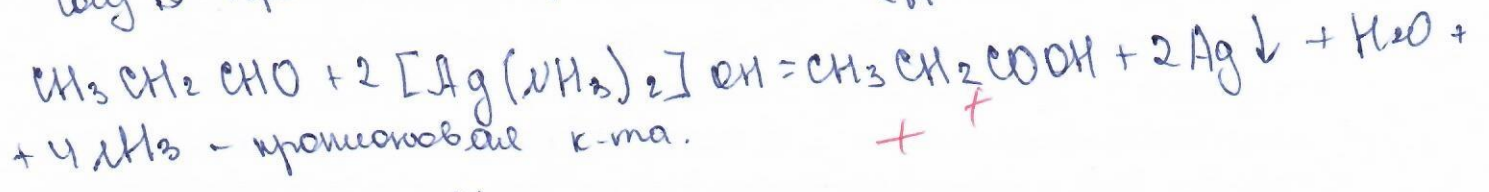 CH3CH2CHO + 2[Ag(NH3)2]OH = CH3CH2COOH + 2Ag↓ + H2O +
+ 4NH3 - пропионовая к-та.